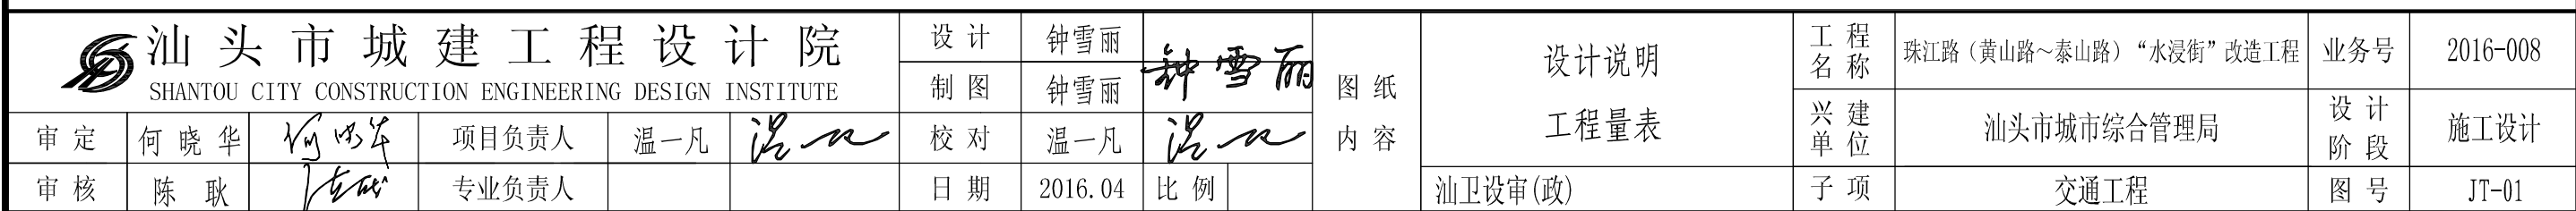 汕头市城建工程设计院
SHANTOU CITY CONSTRUCTION ENGINEERING DESIGN INSTITUTE
审定 何晓华 何晓华 项目负责人 温一凡 温一凡
审核 陈耿 专业负责人
设计 钟雪丽 钟雪丽
制图 钟雪丽
校对 温一凡 温一凡
日期 2016.04 比例
图纸
内容
设计说明
工程量表
汕卫设审(政)
工程
名称 珠江路（黄山路～泰山路）“水浸街”改造工程 业务号 2016-008
兴建
单位 汕头市城市综合管理局 设计
阶段 施工设计
子项 交通工程 图号 JT-01